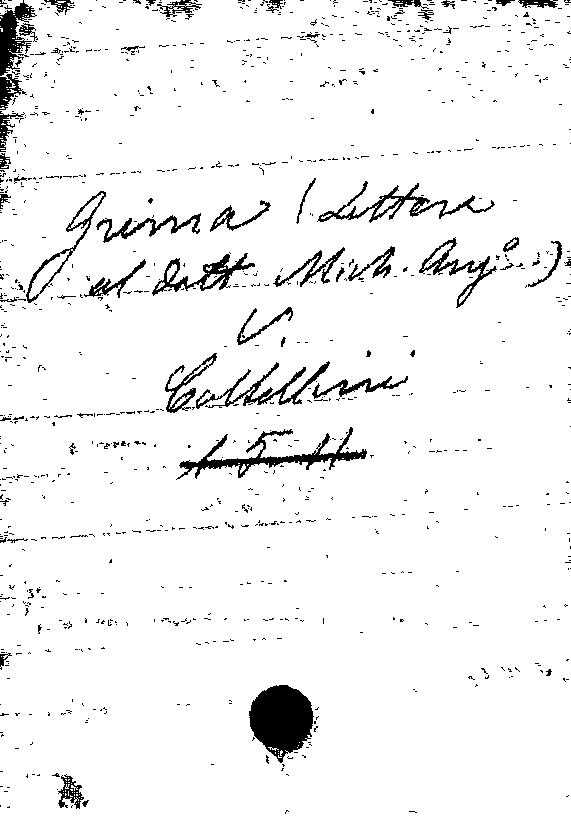 Grima (Lettera
al Dott Mich. Ang.o)
V.
Coltellini
1 5 11